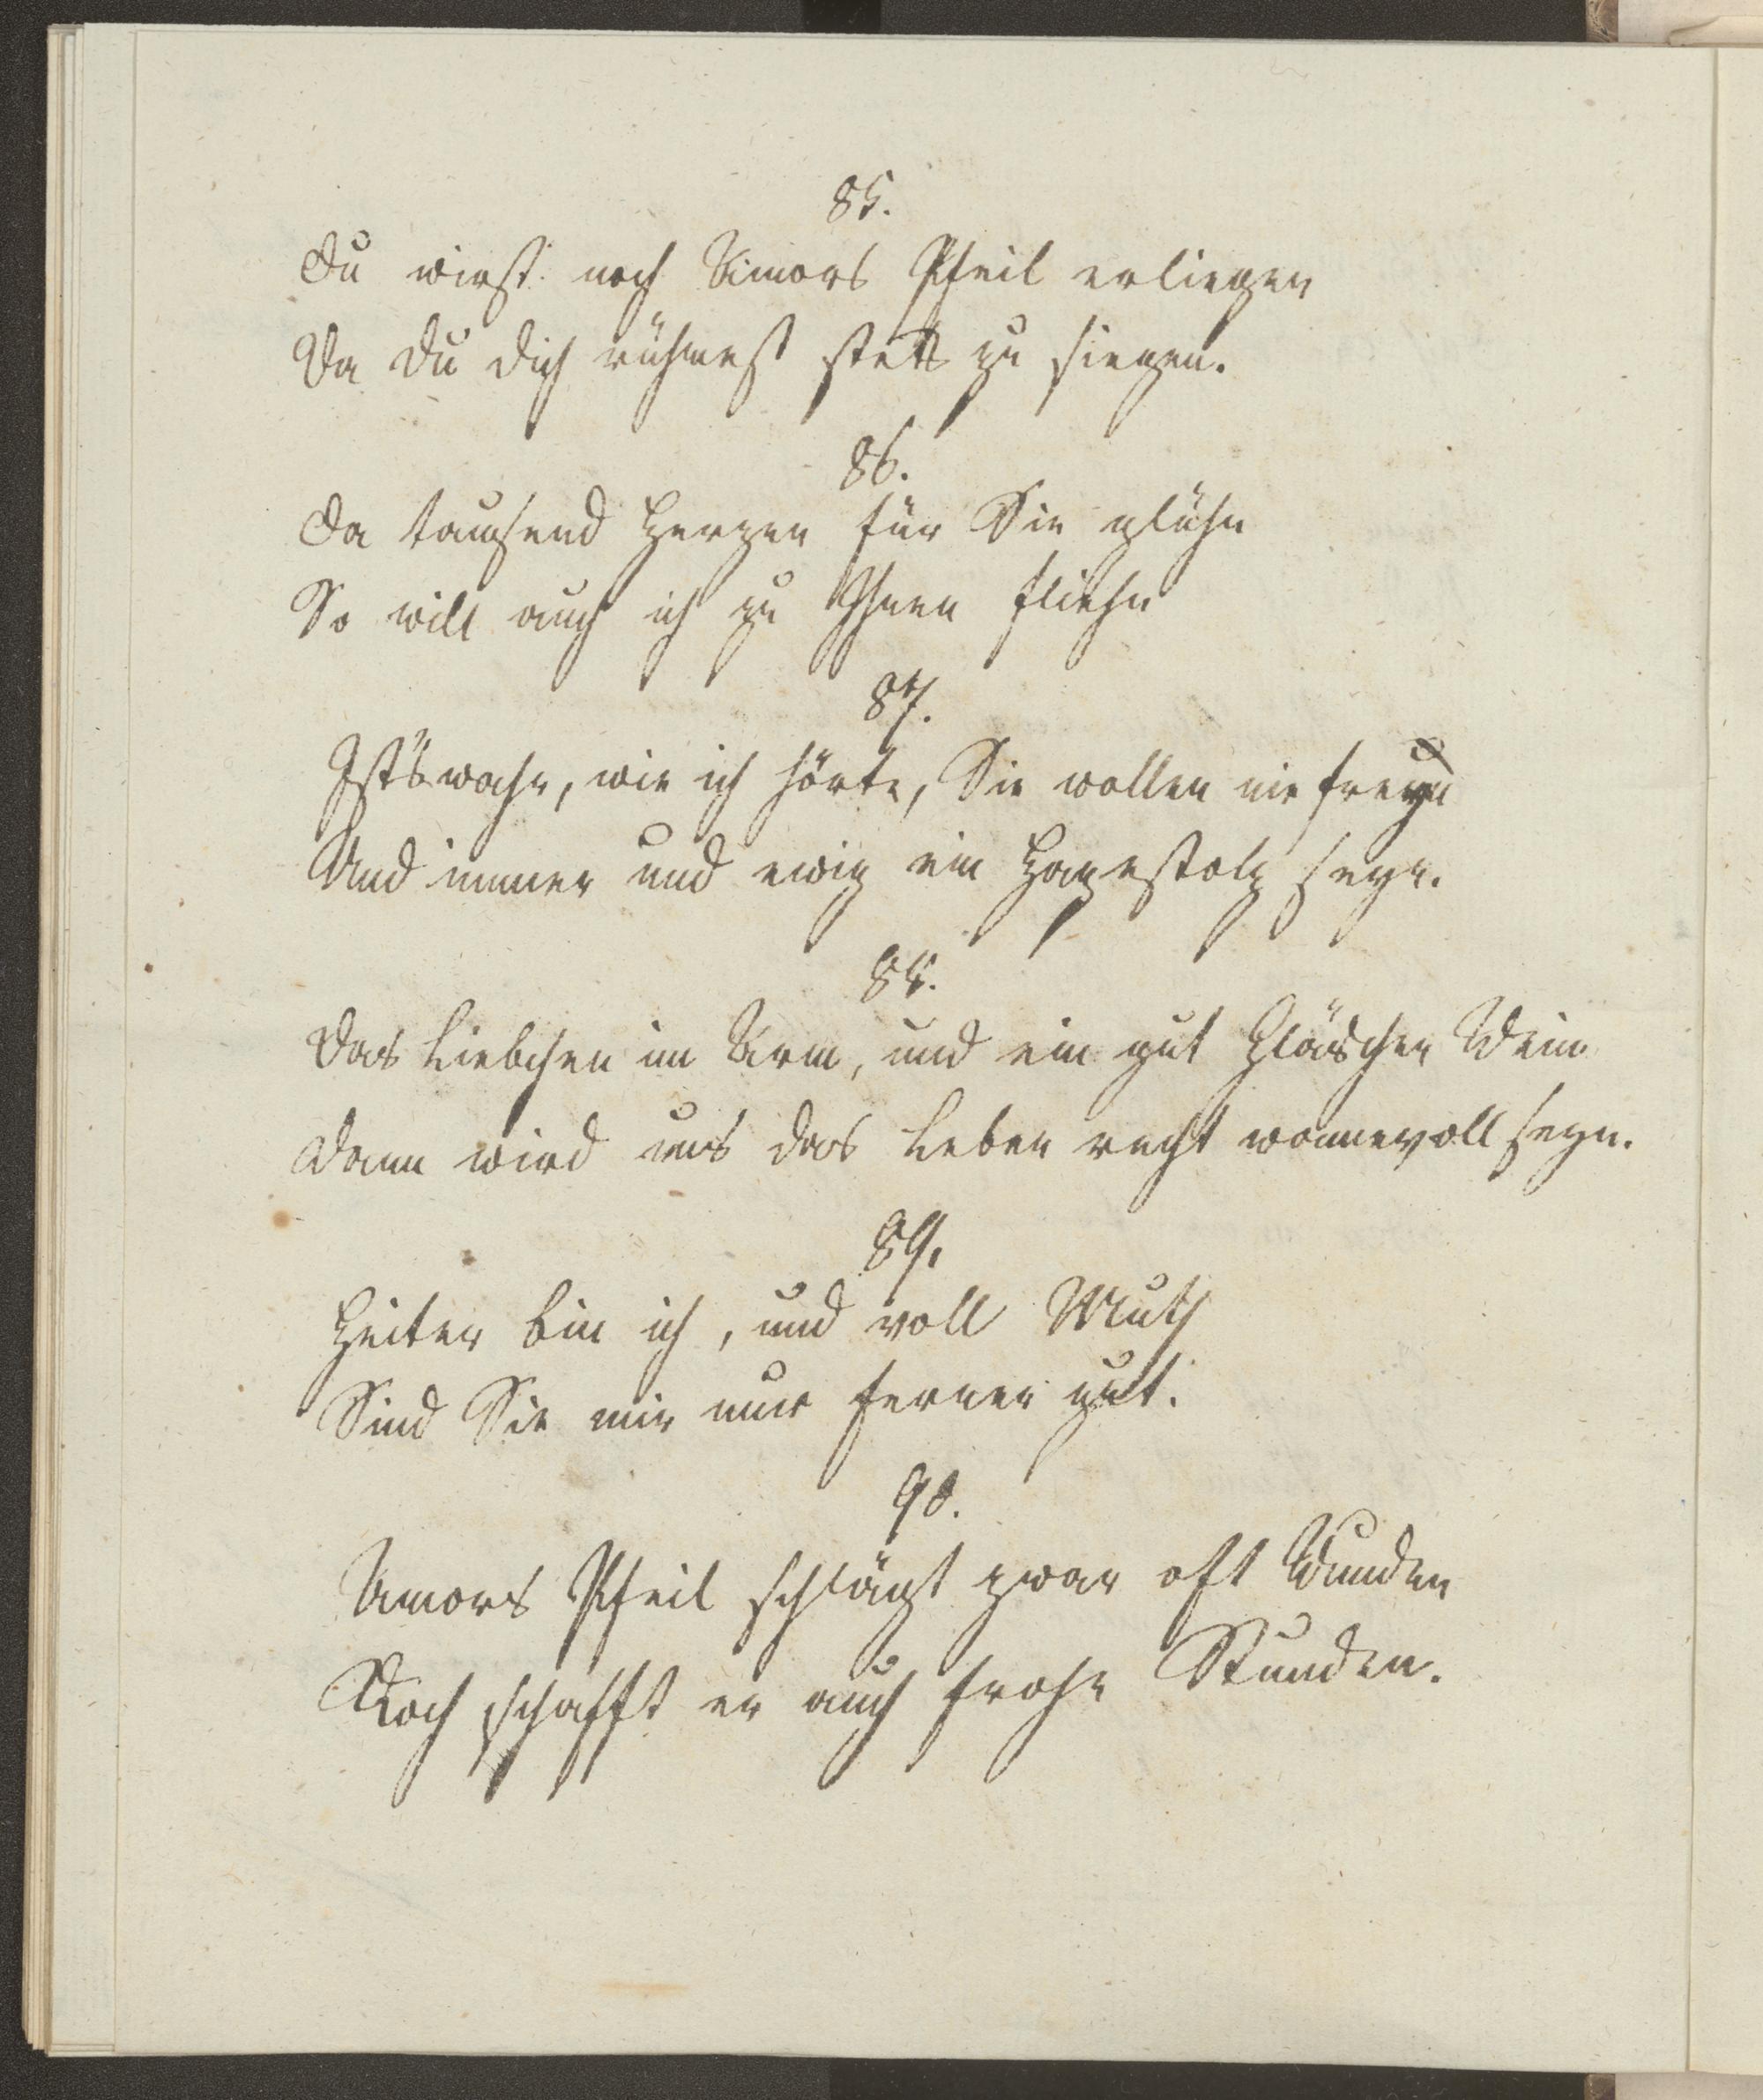 85.
Du wirst noch Amors Pfeil erliegen
Da du dich rühmest stets zu siegen.
86.
Da tausend Herzen für Sie glühn
So will auch ich zu Ihnen fliehn
87.
Ist's wahr, wie ich hörte, Sie wollen nie freyn
Und immer und ewig ein Hagestolz seyn.
88.
Das Liebchen im Arm, und ein gut Gläschen Wein
Dann wird uns das Leben recht wonnevoll seyn.
89.
Heiter bin ich, und voll Muth
Sind Sie mir nur ferner gut.
90.
Amors Pfeil schlägt zwar oft Wunden
Doch schafft er auch frohe Stunden.